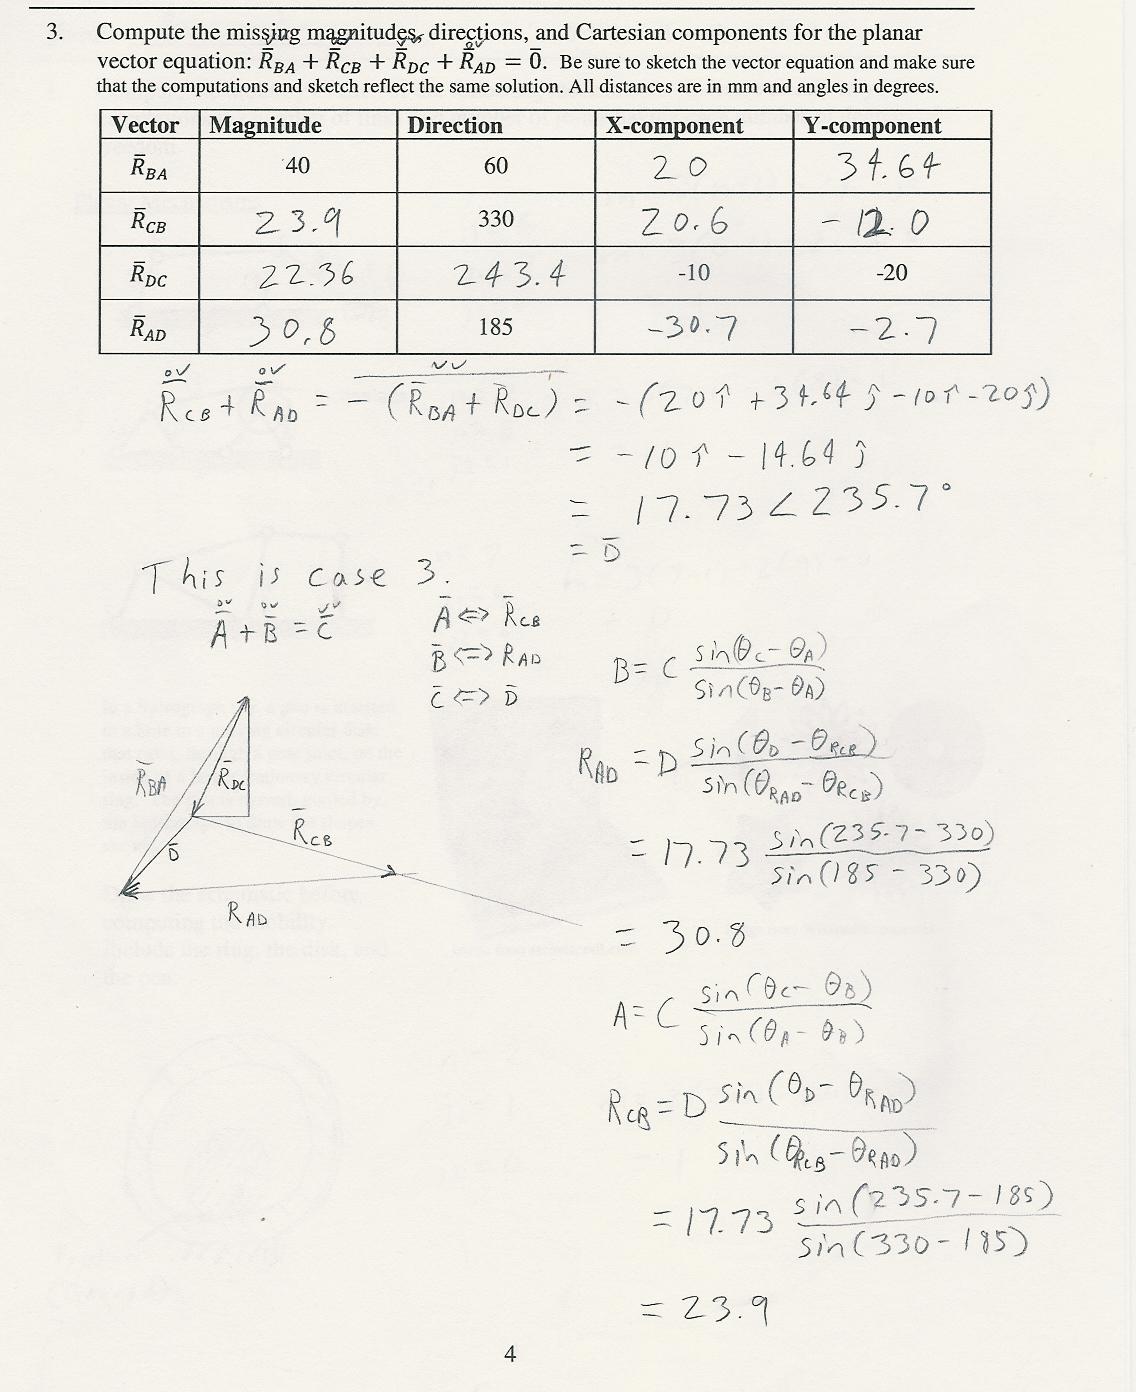 3. Compute the missing magnitudes, directions, and Cartesian components for the planar
vector equation: R̄_BA + R̄_CB + R̄_DC + R̄_AD = 0̄. Be sure to sketch the vector equation and make sure
that the computations and sketch reflect the same solution. All distances are in mm and angles in degrees.
Vector Magnitude Direction X-component Y-component
R̄_BA 40 60 20 34.64
R̄_CB 23.9 330 20.6 -12.0
R̄_DC 22.36 243.4 -10 -20
R̄_AD 30.8 185 -30.7 -2.7
R̄_CB + R̄_AD = -(R̄_BA + R̄_DC) = -(20î + 34.64ĵ - 10î - 20ĵ)
= -10î - 14.64ĵ
= 17.73 < 235.7°
= D̄
This is case 3.
Ā + B̄ = C̄
Ā <=> R̄_CB
B̄ <=> R_AD
C̄ <=> D̄
B = C sin(θ_C - θ_A)
sin(θ_B - θ_A)
R_AD = D sin(θ_D - θ_RCB)
sin(θ_RAD - θ_RCB)
= 17.73 sin(235.7 - 330)
sin(185 - 330)
= 30.8
R̄_BA
R̄_DC
R̄_CB
D̄
R_AD
A = C sin(θ_C - θ_B)
sin(θ_A - θ_B)
R_CB = D sin(θ_D - θ_RAD)
sin(θ_RCB - θ_RAD)
= 17.73 sin(235.7 - 185)
sin(330 - 185)
= 23.9
4